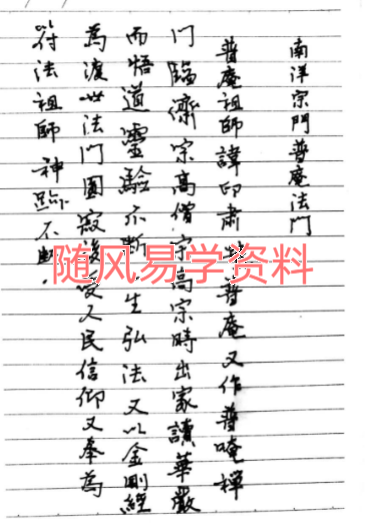 南洋宗門普庵法門
普庵祖師諱印肅 普庵又作普唵禪
門臨濟宗高僧 宁高宗時出家讀華嚴
而悟道靈驗不断 生弘法又以金剛經
為渡世法門圓寂後受人民信仰又奉為
符法祖師神跡不断.
随风易学资料